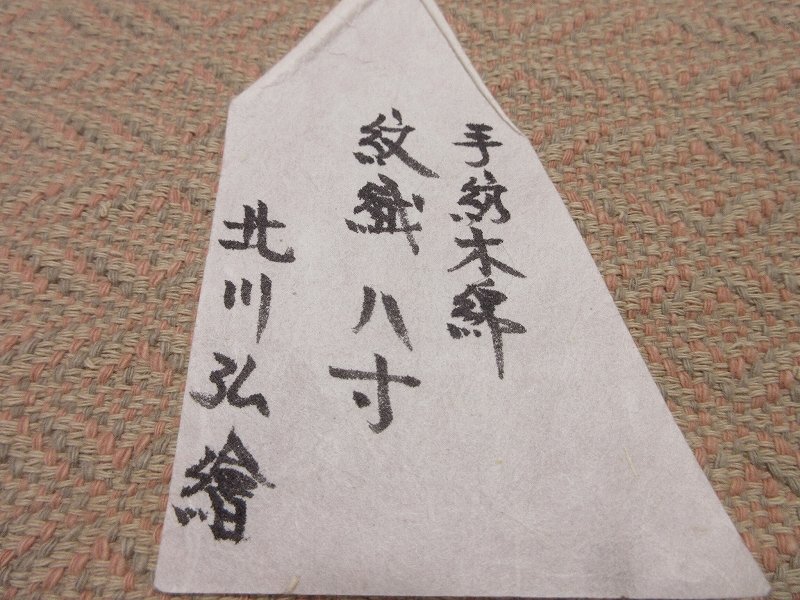 手紡木綿
紋織 八寸
北川弘繪